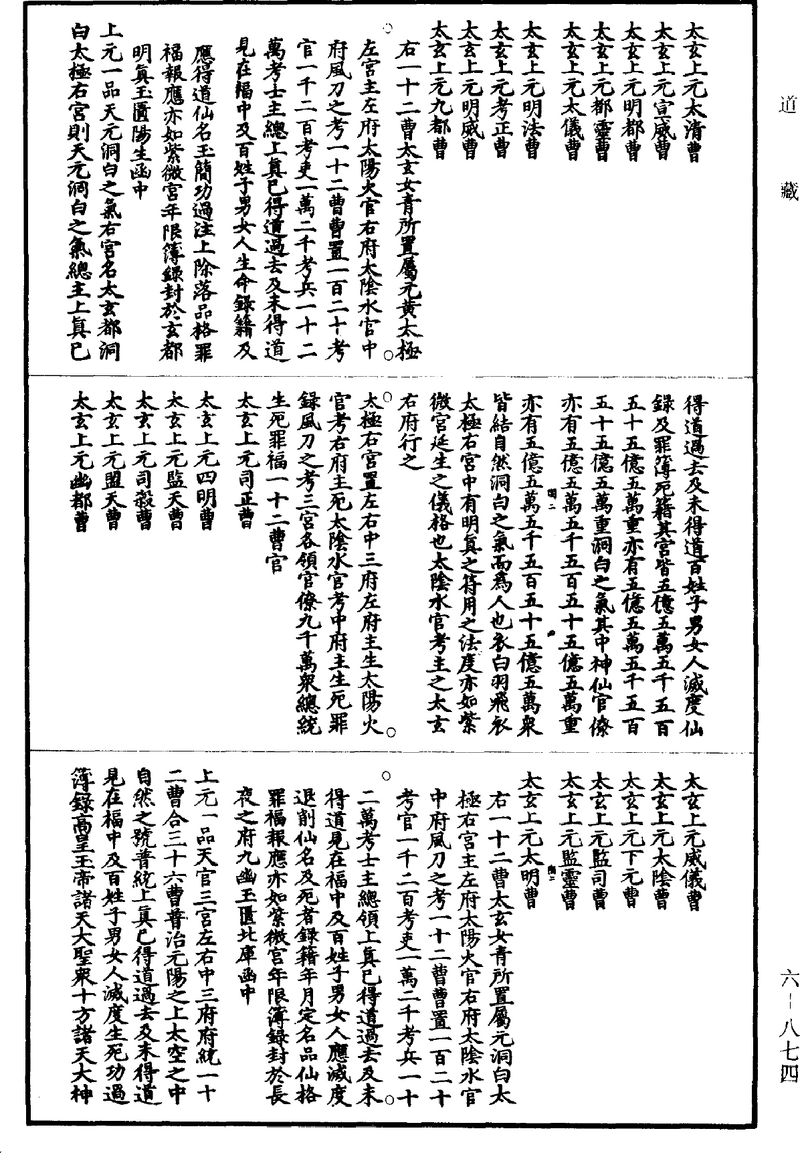 道藏
太玄上元太清曹
太玄上元宣威曹
太玄上元明都曹
太玄上元都靈曹
太玄上元太儀曹
太玄上元明法曹
太玄上元考正曹
太玄上元明威曹
太玄上元九都曹
右一十二曹太玄女青所置屬元黃太極
左宮主左府太陽火官右府太陰水官中
府風刀之考一十二曹曹置一百二十考
官一千二百考吏一萬二千考兵一十二
萬考士主總上真已得道過去及未得道
見在福中及百姓子男女人生命錄籍及
應得道仙名玉簡功過注上除落品格罪
福報應亦如紫微宮年限簿錄封於玄都
明真玉匱陽生函中
上元一品天元洞白之氣右宮名太玄都洞
白太極右宮則天元洞白之氣總主上真已
得道過去及未得道百姓子男女人滅度仙
錄及罪簿死籍其宮皆五億五萬五千五百
五十五億五萬重亦有五億五萬五千五百
五十五億五萬重洞白之氣其中神仙官僚
亦有五億五萬五千五百五十五億五萬重
亦有五億五萬五千五百五十五億五萬衆
皆結自然洞白之氣而為人也衣白羽飛衣
太極右宮中有明真之符用之法度亦如紫
微宮延生之儀格也太陰水官考主之太玄
右府行之
太極右宮置左右中三府左府主生太陽火
官考右府主死太陰水官考中府主生死罪
錄風刀之考三宮各領官僚九千萬衆總統
生死罪福一十二曹官
太玄上元司正曹
太玄上元四明曹
太玄上元監天曹
太玄上元司殺曹
太玄上元盟天曹
太玄上元幽都曹
太玄上元威儀曹
太玄上元太陰曹
太玄上元下元曹
太玄上元監司曹
太玄上元監靈曹
太玄上元太明曹
右一十二曹太玄女青所置屬元洞白太
極右宮主左府太陽火官右府太陰水官
中府風刀之考一十二曹曹置一百二十
考官一千二百考吏一萬二千考兵一十
二萬考士主總領上真已得道過去及未
得道見在福中及百姓子男女人應滅度
退削仙名及死者錄籍年月定名品仙格
罪福報應亦如紫微宮年限簿錄封於長
夜之府九幽玉匱北庫函中
上元一品天官三宮左右中三府府統一十
二曹合三十六曹普治元陽之上太空之中
自然之號普統上真已得道過去及未得道
見在福中及百姓子男女人滅度生死功過
簿錄高皇玉帝諸天大聖衆十方諸天大神
六－八七四